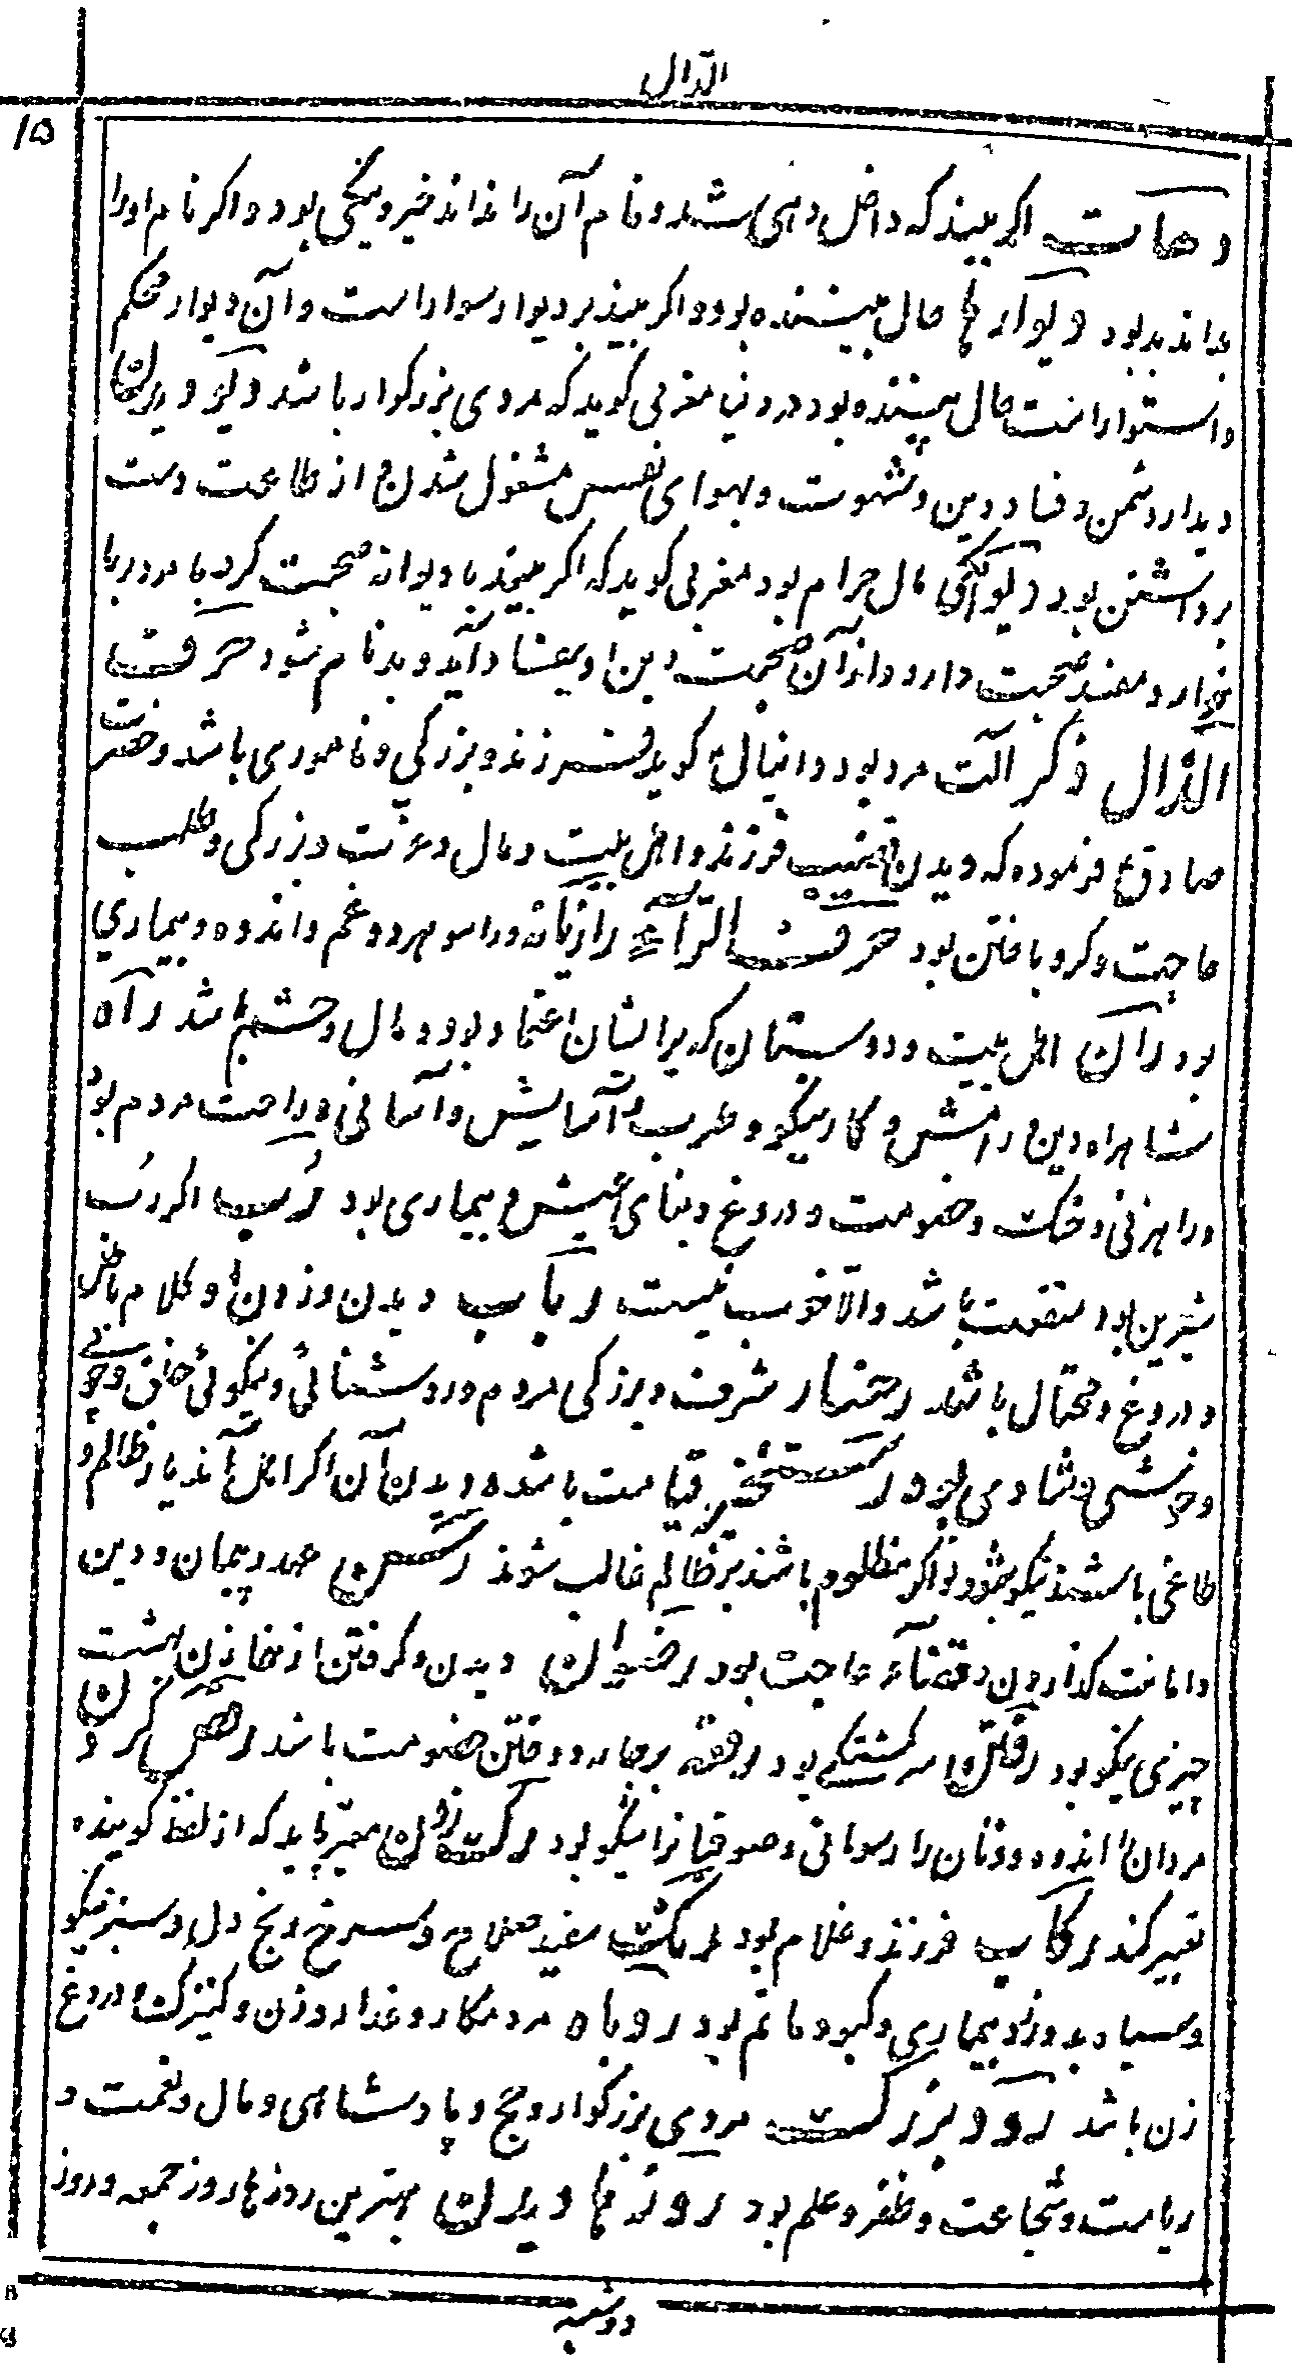 الدال
۱۵
دهات اکر بیند که داخل دهی شد و نام آن را نداند خیر و نیکی بود و اکر نام او را
بداند بد بود دیوار ها حال بیننده بود و اکر بیند بر دیوار سوار است و آن دیوار محکم
و استوار است حال بیننده بود در دنیا مغربی کوید که مردی بزرکوار باشد دیو دیدن
دیدار دشمن و فساد دین و شهوت و بهوای نفس مشغول شدن و از طاعت دست
برداشتن بود دیوانکی مال حرام بود مغربی کوید که اکر بیند با دیوانه صحبت کرد با مرد ربا
خوار و مفسد صحبت دارد و از آن صحبت دین او بفساد آید و بدنام شود حرف
الذال ذکر آلت مرد بود دانیال ع کوید فرزند و بزرکی و ناموری باشد و حضرت
صادق ع فرموده که دیدن قضیب فرزند و اهل بیت و مال و عزت و بزرکی و طلب
حاجت و کرو یافتن بود حرف الراء رازیانه و راسو هر دو غم و اندوه و بیماری
بود ران اهل بیت و دوستان که بر ایشان اعتماد بود و مال و حشم باشد راه
شاهراه دین و رامش و کار نیکو و طرب و آسایش و آسانی و راحت مردم بود
و راهزنی و جنک و خصومت و دروغ و بنای عیش و بیماری بود رُب اکر رُب
شیرین بود منفعت باشد و الّا خوب نیست رباب دیدن و زدن و کلام باطل
و دروغ و محتال باشد رخسار شرف و بزرکی مردم و روشنائی و نیکوئی خلق و خوبی
و خوشی و شادی بود رستخیز قیامت باشد و دیدن آن اکر اهل آن دیار ظالم و
طاغی باشند نیکو نبود و اکر مظلوم باشند بر ظالم غالب شوند رسن عهد و پیمان و دین
و امانت کذاردن و قضاء حاجت بود رضوان دیدن و کرفتن از خازن بهشت
چیزی نیکو بود رفتن سرکشتکی بود رقعه بر جامه دوختن خصومت باشد رقص کردن
مردان را اندوه و زنان را رسوائی و صوفیان را نیکو بود رک زدن معبر باید که از لفظ کوینده
تعبیر کند رکاب فرزند و غلام بود رنک سفید صلاح و سرخ رنج دل و سبز نیکو
و سیاه بد و زرد بیماری و کبود ماتم بود روباه مرد مکار و غدار و زن و کنیزک و دروغ
زن باشد رود بزرک مردی بزرکوار و حج و پادشاهی و مال و نعمت و
ریاست و شجاعت و ظفر و علم بود روزها دیدن بهترین روزها روز جمعه و روز
دوشنبه